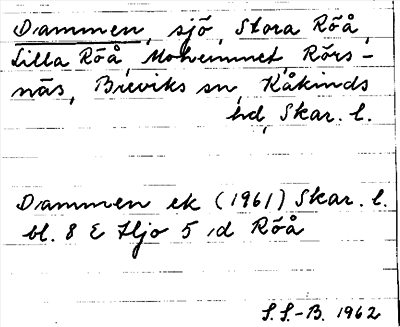 Dammen, sjö, Stora Röå,
Lilla Röå, Mohemmet, Rörs-
näs, Breviks sn, Kåkinds
hd, Skar. l.
Dammen ek (1961) Skar. l.
bl. 8 E Hjo 5 d Röå
S.S.-B. 1962